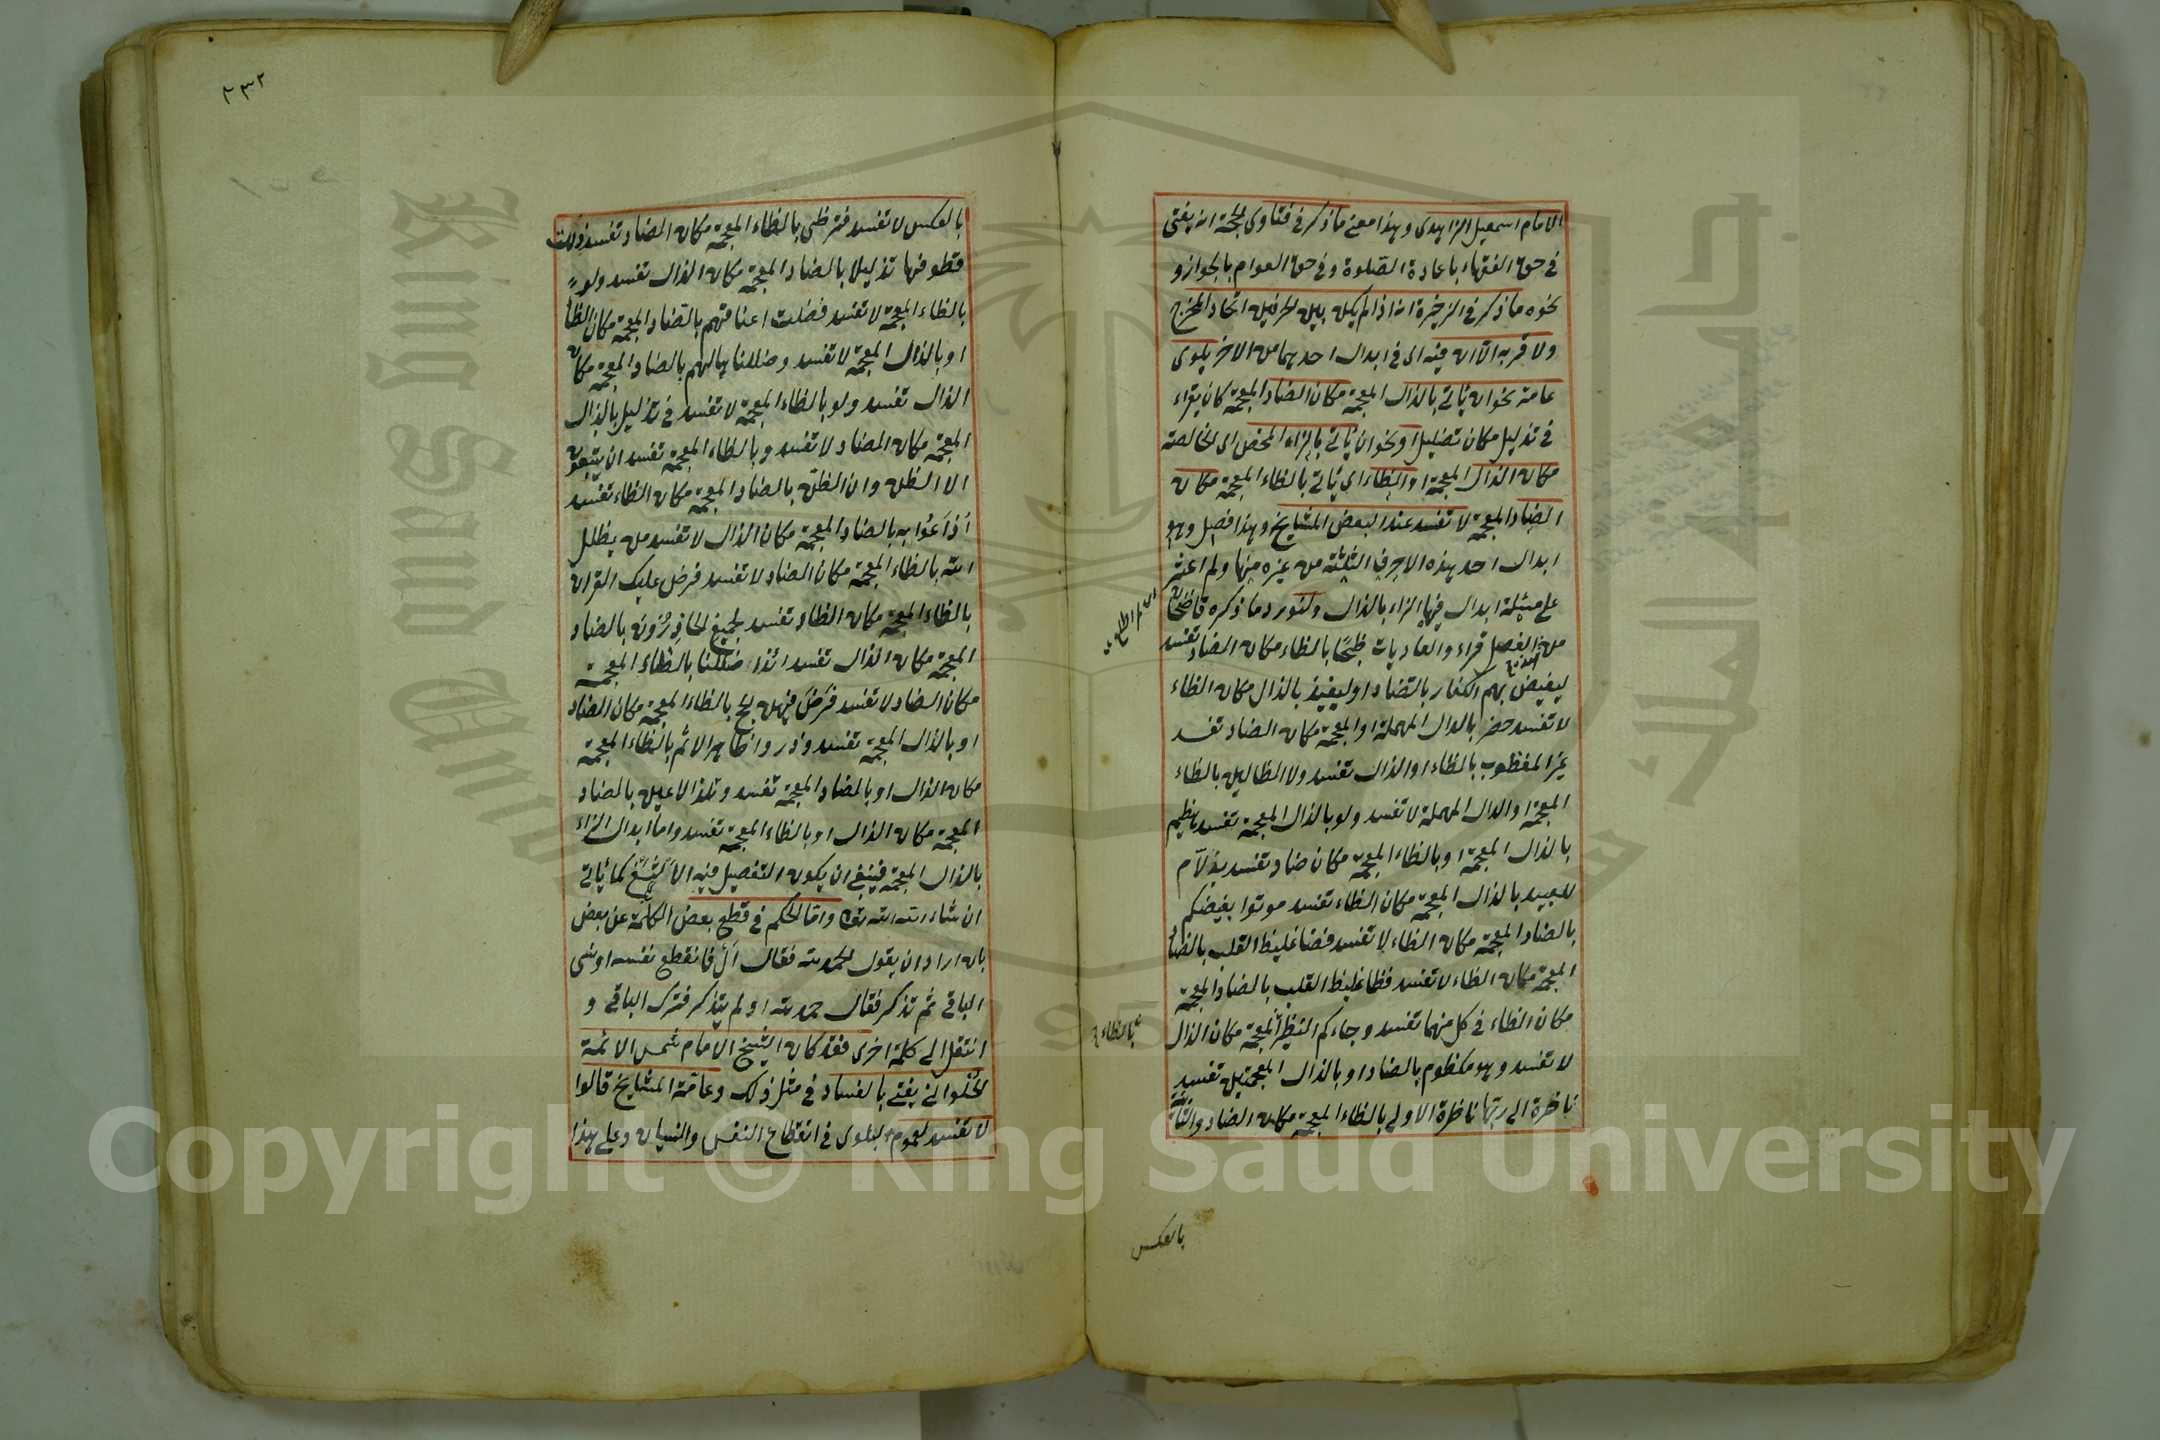 الامام اسمعيل الزاهدى وهذا معنى ما ذكر فى فتاوى الحجة انه يفتى
فى حق الفقهاء باعادة الصلوة وفى حق العوام بالجواز و
نحوه ما ذكر فى الذخيرة انه اذا لم يكن بين الحرفين اتحاد المخرج
ولا قربه الا ان فيه اى فى ابدال احدهما من الاخر بلوى
عامة نحو ان ياتى بالذال المعجمة مكان الضاد المعجمة كان يقراء
فى تذليل مكان تضليل او نحو ان ياتى بالزاء المحض اى الخالصة
مكان الذال المعجمة او الظاء اى ياتى بالظاء المعجمة مكان
الضاد المعجمة لا تفسد عند البعض المشايخ وهذا فصل وهو
ابدال احد هذه الاحرف الثلثة من غيره منها ولم اعثر
على مسئلة ابدال فيها الزاء بالذال ولنورد ما ذكره قاضيخان
من الفصل قراء والعاديات ظبحا بالظاء مكان الضاد تفسد
ليغيض بهم الكفار بالضاد او ليغيذ بالذال مكان الظاء
لا تفسد خضر بالدال المهملة او المعجمة مكان الضاد تفسد
غير المغظوب بالظاء او الذال تفسد ولا الظالين بالظاء
المعجمة او الدال المهملة لا تفسد ولو بالذال المعجمة تفسد هظيم
بالذال المعجمة او بالظاء المعجمة مكان ضاد تفسد بذلام
للعبيد بالذال المعجمة مكان الظاء تفسد موتوا بغيضكم
بالضاد المعجمة مكان الظاء لا تفسد فضا غليظ القلب بالضاد
المعجمة مكان الظاء لا تفسد فظا غليظ القلب بالضاد المعجمة
مكان الظاء فى كل منهما تفسد وجاءكم النظير المعجمة مكان الذال
بالظاء
لا تفسد وهو مكظوم بالضاد او بالذال المعجمتين تفسد
ناضرة الى ربها ناظرة الاولى بالظاء المعجمة مكان الضاد والثانية
بالعكس
٢٣٢
بالعكس لا تفسد فترظى بالظاء المعجمة مكان الضاد تفسد وذللت
قطوفها تذليلا بالضاد المعجمة مكان الذال تفسد ولو
بالظاء المعجمة لا تفسد فضلت اعناقهم بالضاد المعجمة مكان الظاء
او بالذال المعجمة لا تفسد وضللناها لهم بالضاد المعجمة مكان
الذال تفسد ولو بالظاء المعجمة لا تفسد فى تذليل بالذال
المعجمة مكان الضاد لا تفسد وبالظاء المعجمة تفسد ان يتبعون
الا الظن وان الظن بالضاد المعجمة مكان الظاء تفسد
اذاعوا به بالضاد المعجمة مكان الذال لا تفسد من يظلل
الله بالظاء المعجمة مكان الضاد لا تفسد فرض عليك القران
بالظاء المعجمة مكان الضاد تفسد لجميع حاذرون بالضاد
المعجمة مكان الذال تفسد ائذا ضللنا بالظاء المعجمة
مكان الضاد لا تفسد فرض فيهن الحج بالظاء المعجمة مكان الضاد
او بالذال المعجمة تفسد وذروا ظاهر الاثم بالظاء المعجمة
مكان الذال او بالضاد المعجمة تفسد وتلذ الاعين بالضاد
المعجمة مكان الذال او بالظاء المعجمة تفسد واما ابدال الزاء
بالذال المعجمة فينبغى ان يكون التفصيل فيه الالثغ كما ياتى
ان شاء الله تعالى واما الحكم فى قطع بعض الكلمة عن بعض
بان اراد ان يقول الحمد لله فقال ال فانقطع نفسه او نسى
الباقى ثم تذكر فقال حمد لله او لم يتذكر فترك الباقى و
انتقل الى كلمة اخرى فقد كان الشيخ الامام شمس الائمة
الحلوانى يفتى بالفساد فى مثل ذلك وعامة المشايخ قالوا
لا تفسد لعموم البلوى فى انقطاع النفس والنسيان وعلى هذا
King Saud University
1957
Copyright © King Saud University